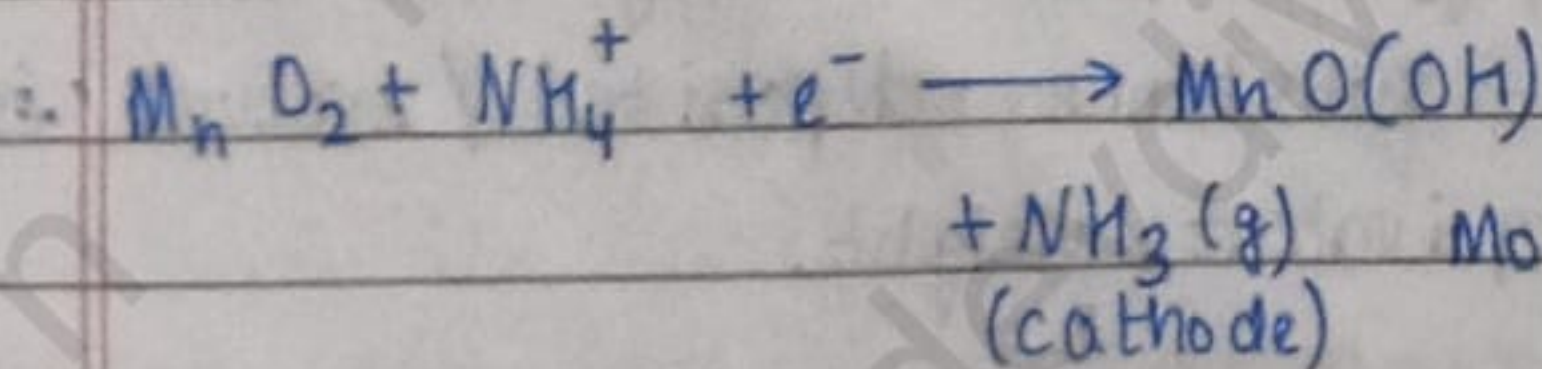 ∴ MnO₂ + NH₄⁺ + e⁻ ⟶ MnO(OH)
+ NH₃ (g) Mo
(cathode)